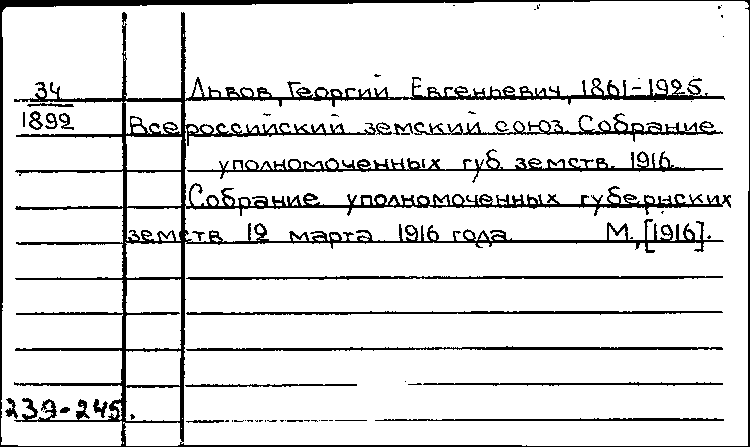 34 Львов, Георгий Евгеньевич, 1861-1925.
1892 Всероссийский земский союз. Собрание
уполномоченных губ. земств. 1916.
Собрание уполномоченных губернских
земств 12 марта 1916 года. М., [1916].
239-245.